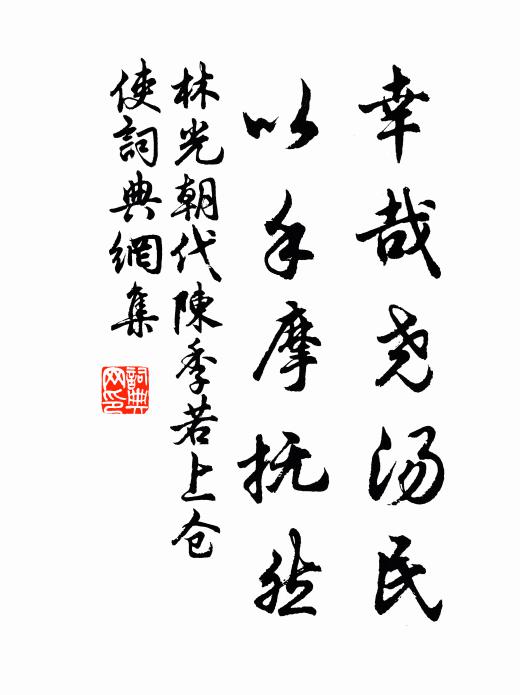 幸哉尧汤民
以手摩抚然
林光朝代陳季若上仓
使詞典網集
詞典
网印